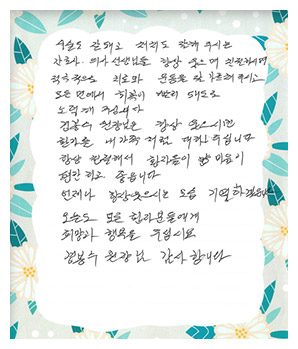 수술도 잘해주고 처치도 잘해 주시는
간호사. 의사 선생님들 항상 웃으며 친절하시며
적극적으로 치료와 운동을 잘 가르쳐 주시고
모든 면에서 회복이 빨리 되도록
노력해 주십니다
김봉수 원장님은 항상 웃으시면
환자를 내 가족처럼 대해 주십니다
항상 친절해서 환자들이 마음이
편안하고 좋습니다
언제나 항상 웃으시는 모습 기억하겠습니다
오늘도 모든 환자분들에게
희망과 행복을 주십시요
김봉수 원장님 감사합니다